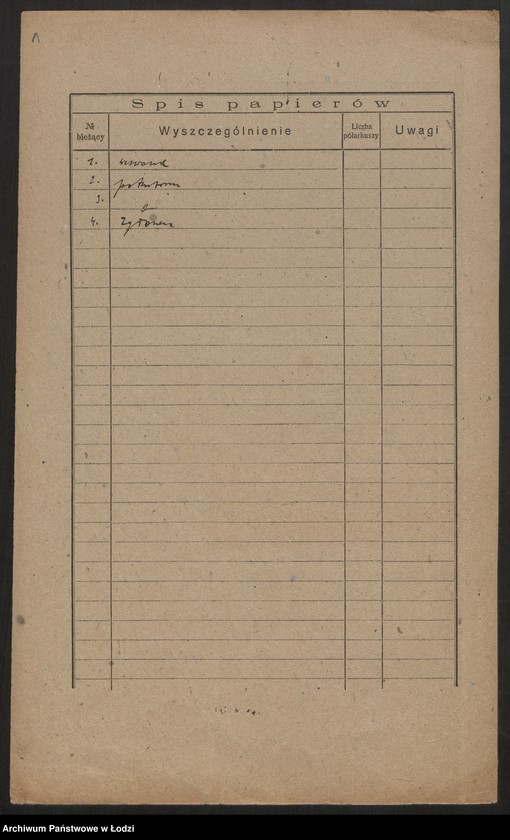 Spis papierów
№ bieżący
Wyszczególnienie
Liczba półarkuszy
Uwagi
1.
2.
3.
4.
Archiwum Państwowe w Łodzi